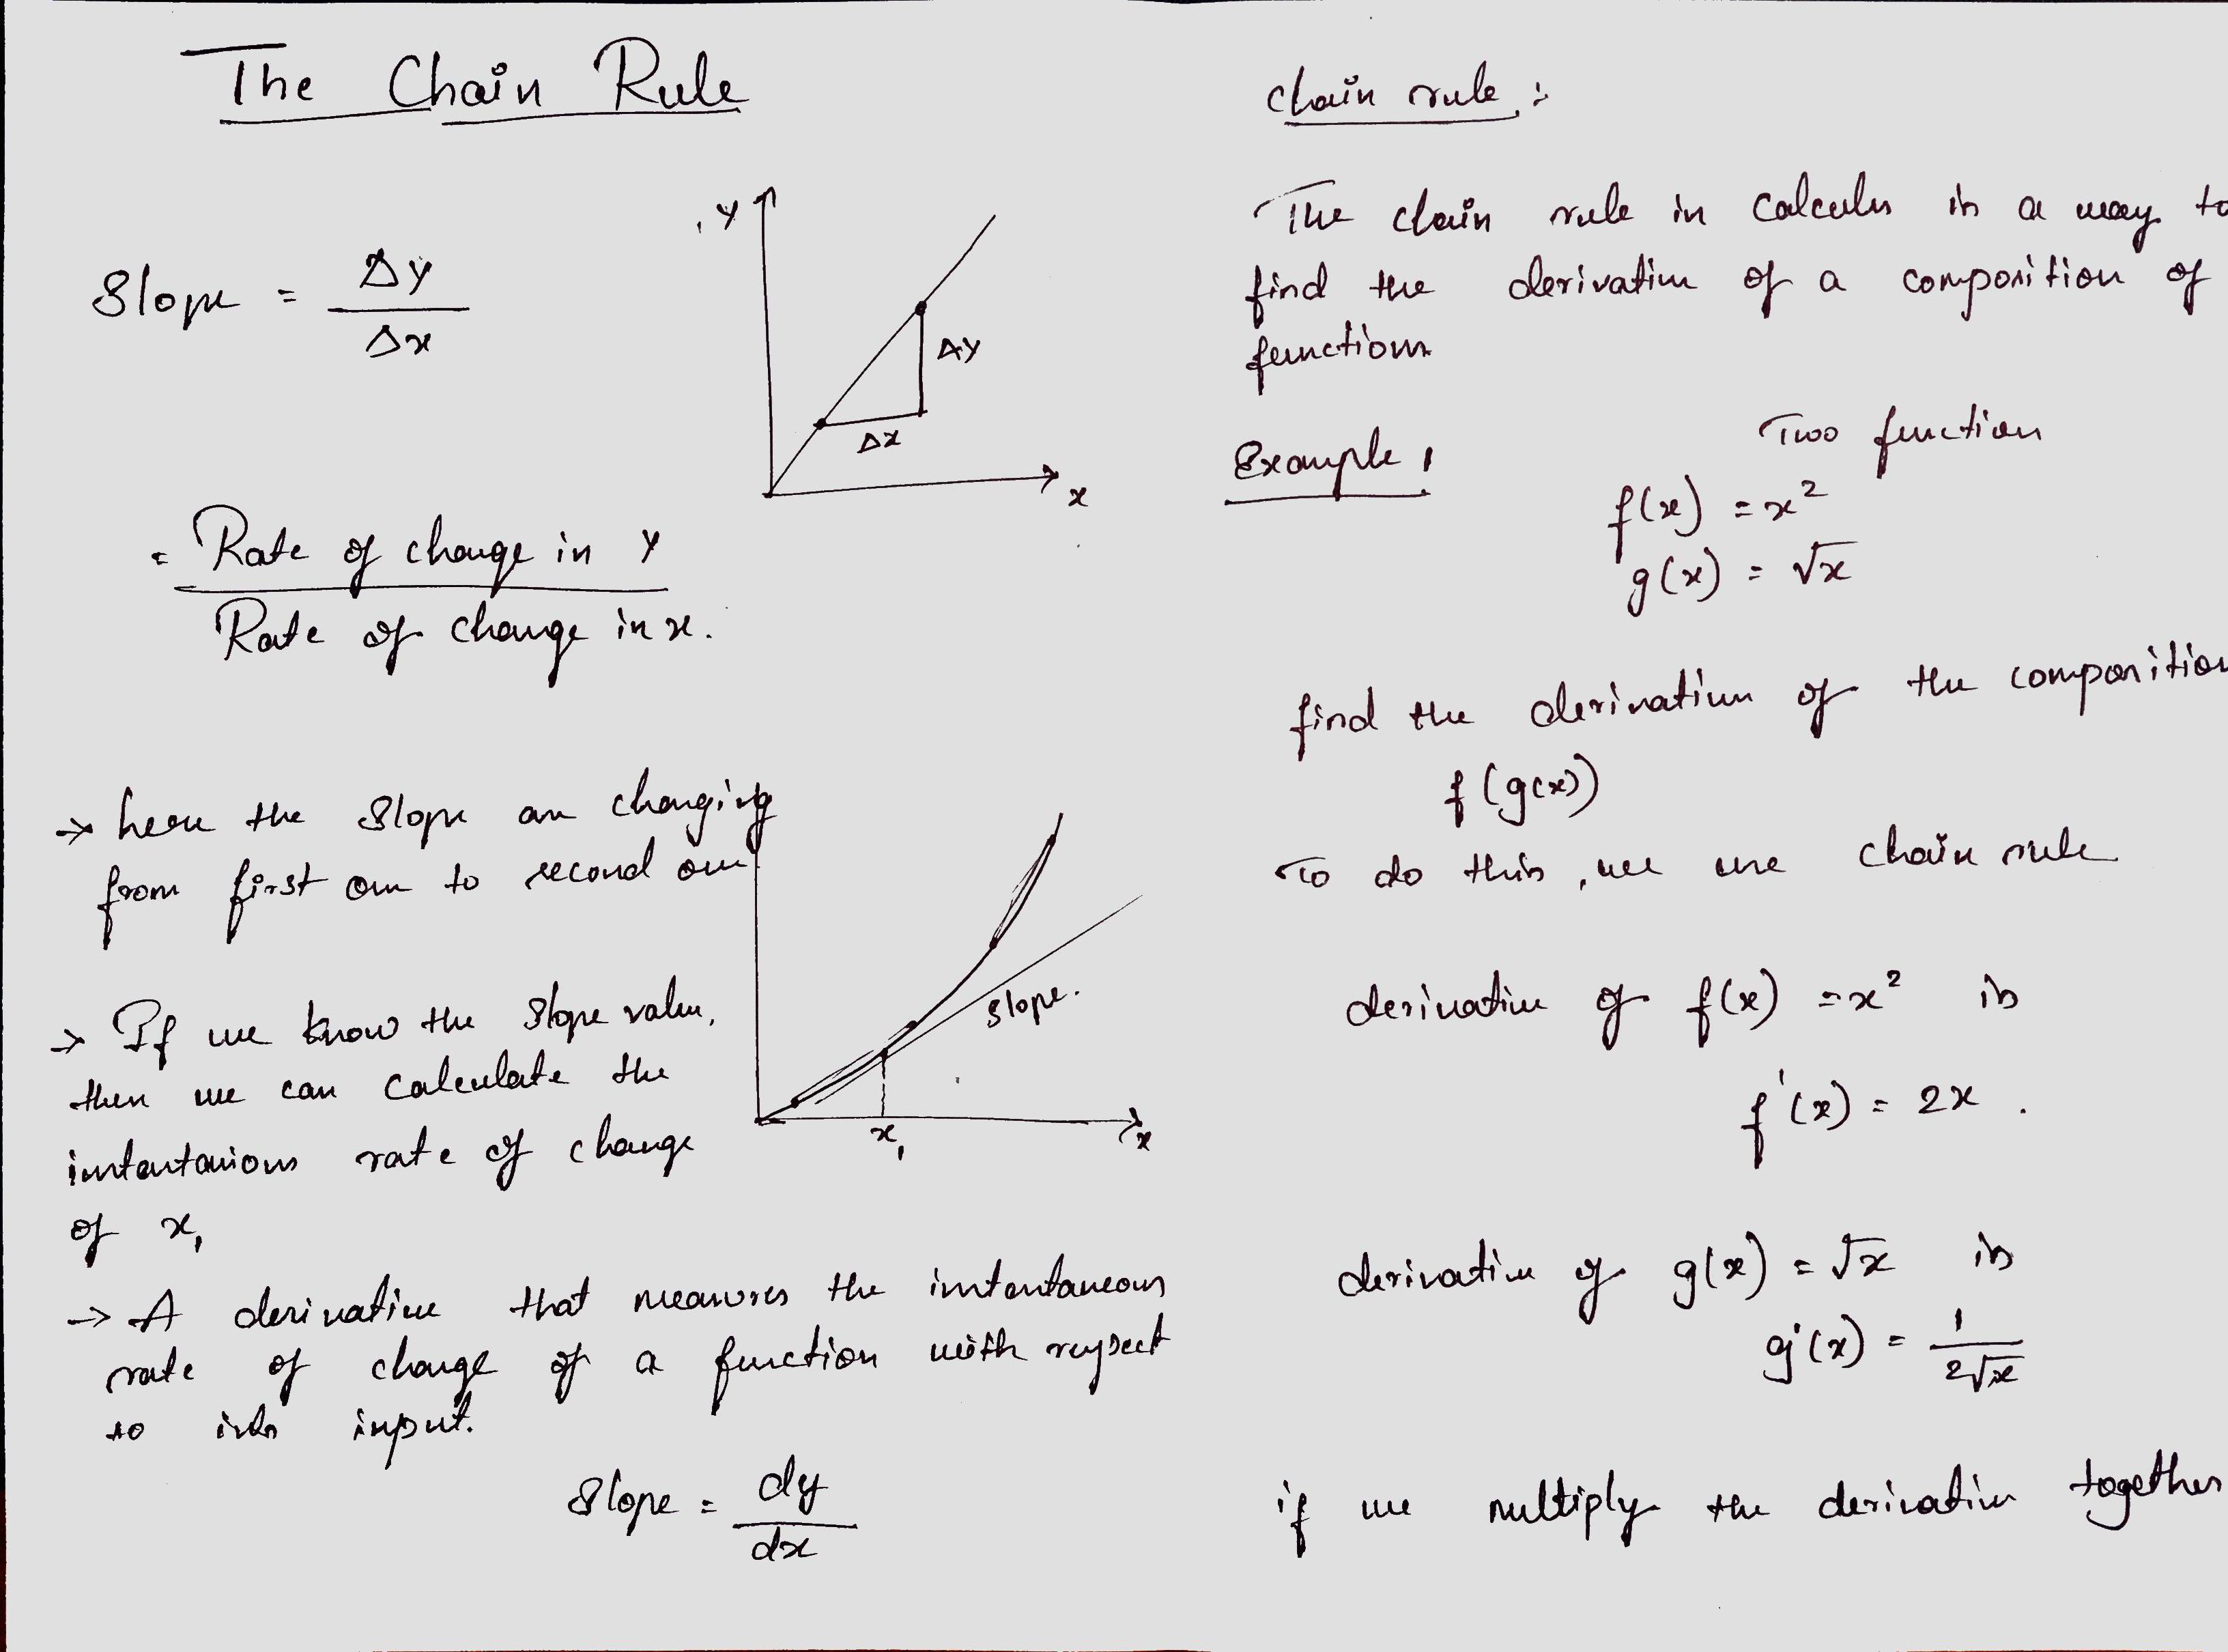 The Chain Rule
Slope = Δy / Δx
y
Δy
Δx
x
= Rate of change in y
Rate of change in x.
→ here the Slope are changing
from first one to second one
→ If we know the Slope value,
then we can calculate the
instantanious rate of change
of x₁
slope.
x₁
x
→ A derivative that measures the instantaneous
rate of change of a function with respect
to its input.
Slope = dy / dx
Chain rule :
The chain rule in calculus is a way to
find the derivative of a composition of
functions
Example !
Two function
f(x) = x²
g(x) = √x
find the derivative of the composition
f(g(x))
To do this, we use chain rule
derivative of f(x) = x² is
f'(x) = 2x .
derivative of g(x) = √x is
g'(x) = 1 / 2√x
if we multiply the derivative together